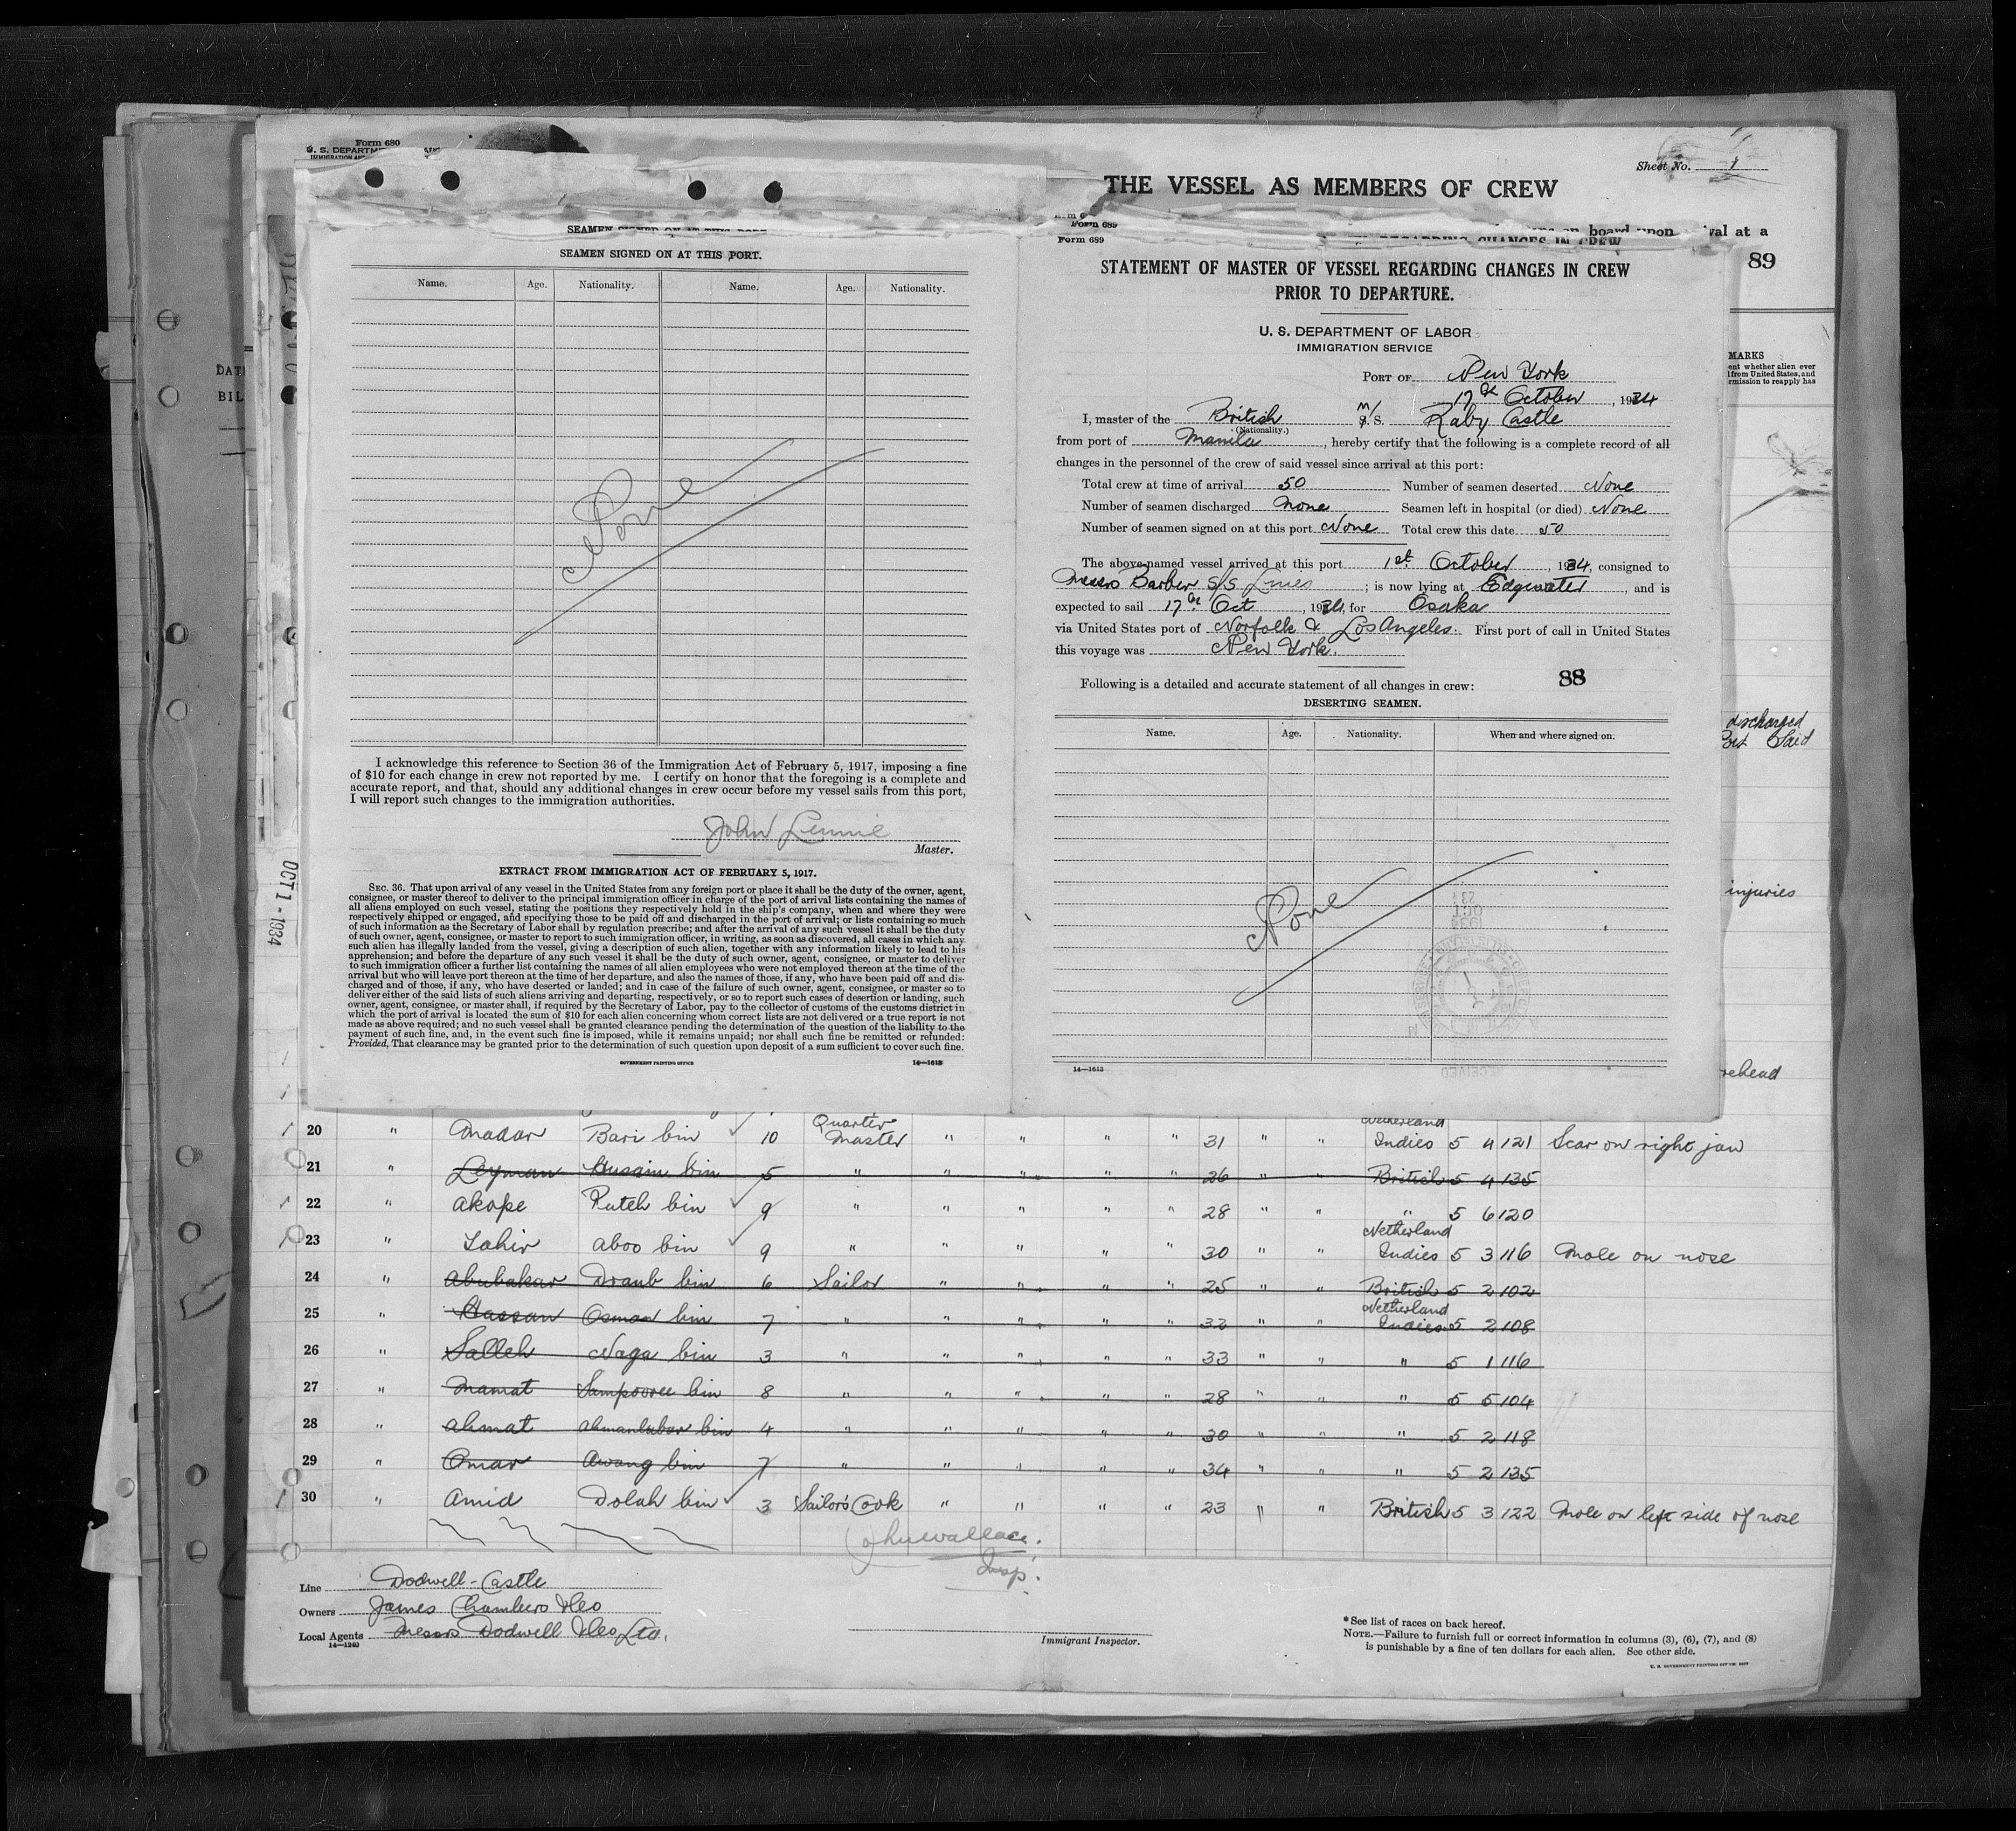 Form 680
U. S. DEPARTM
Sheet No. 1
THE VESSEL AS MEMBERS OF CREW
on board upon val at a
Form 689
89
SEAMEN SIGNED ON AT THIS PORT.
Name. Age. Nationality. Name. Age. Nationality.
None
I acknowledge this reference to Section 36 of the Immigration Act of February 5, 1917, imposing a fine
of $10 for each change in crew not reported by me. I certify on honor that the foregoing is a complete and
accurate report, and that, should any additional changes in crew occur before my vessel sails from this port,
I will report such changes to the immigration authorities.
John Lennie
Master.
EXTRACT FROM IMMIGRATION ACT OF FEBRUARY 5, 1917.
SEC. 36. That upon arrival of any vessel in the United States from any foreign port or place it shall be the duty of the owner, agent,
consignee, or master thereof to deliver to the principal immigration officer in charge of the port of arrival lists containing the names of
all aliens employed on such vessel, stating the positions they respectively hold in the ship's company, when and where they were
respectively shipped or engaged, and specifying those to be paid off and discharged in the port of arrival; or lists containing so much
of such information as the Secretary of Labor shall by regulation prescribe; and after the arrival of any such vessel it shall be the duty
of such owner, agent, consignee, or master to report to such immigration officer, in writing, as soon as discovered, all cases in which any
such alien has illegally landed from the vessel, giving a description of such alien, together with any information likely to lead to his
apprehension; and before the departure of any such vessel it shall be the duty of such owner, agent, consignee, or master to deliver
to such immigration officer a further list containing the names of all alien employees who were not employed thereon at the time of the
arrival but who will leave port thereon at the time of her departure, and also the names of those, if any, who have been paid off and dis-
charged and of those, if any, who have deserted or landed; and in case of the failure of such owner, agent, consignee, or master so to
deliver either of the said lists of such aliens arriving and departing, respectively, or so to report such cases of desertion or landing, such
owner, agent, consignee, or master shall, if required by the Secretary of Labor, pay to the collector of customs of the customs district in
which the port of arrival is located the sum of $10 for each alien concerning whom correct lists are not delivered or a true report is not
made as above required; and no such vessel shall be granted clearance pending the determination of the question of the liability to the
payment of such fine, and, in the event such fine is imposed, while it remains unpaid; nor shall such fine be remitted or refunded:
Provided, That clearance may be granted prior to the determination of such question upon deposit of a sum sufficient to cover such fine.
GOVERNMENT PRINTING OFFICE 14—1613
OCT 1 - 1934
Form 689
STATEMENT OF MASTER OF VESSEL REGARDING CHANGES IN CREW
PRIOR TO DEPARTURE.
U. S. DEPARTMENT OF LABOR
IMMIGRATION SERVICE
PORT OF New York
17th October, 1934
I, master of the British M/S. Raby Castle
(Nationality.)
from port of Manila, hereby certify that the following is a complete record of all
changes in the personnel of the crew of said vessel since arrival at this port:
Total crew at time of arrival 50 Number of seamen deserted None
Number of seamen discharged None Seamen left in hospital (or died) None
Number of seamen signed on at this port None Total crew this date 50
The above-named vessel arrived at this port 1st October, 1934, consigned to
Messrs Barber S/S Lines; is now lying at Edgewater, and is
expected to sail 17th Oct, 1934, for Osaka
via United States port of Norfolk & Los Angeles. First port of call in United States
this voyage was New York.
88
Following is a detailed and accurate statement of all changes in crew:
DESERTING SEAMEN.
Name. Age. Nationality. When and where signed on.
None
14—1613
MARKS
ent whether alien ever
from United States, and
rmission to reapply has
discharged
Said
injuries
rehead
20 " Madar Bari bin 10 Quarter Master " " " " 31 " " Netherland Indies 5 4 121 Scar on right jaw
21 " Leyman Husain bin 5 " " " " " 26 " " British 5 4 135
22 " Akope Puteh bin 9 " " " " " 28 " " " 5 6 120
23 " Tahir Aboo bin 9 " " " " " 30 " " Netherland Indies 5 3 116 Mole on nose
24 " Abubakar Draub bin 6 Sailor " " " " 25 " " British 5 2 102
25 " Hassan Osman bin 7 " " " " " 32 " " Netherland Indies 5 2 108
26 " Salleh Naga bin 3 " " " " " 33 " " " 5 1 116
27 " Mamat bin 8 " " " " " 28 " " " 5 5 104
28 " Ahmat bin 4 " " " " " 30 " " " 5 2 118
29 " Omar Awang bin 7 " " " " " 34 " " " 5 2 135
30 " Amid Dolah bin 3 Sailors Cook " " " " 23 " " British 5 3 122 Mole on left side of nose
Insp.
Line Dodwell-Castle
Owners James Chambers &Co
Local Agents Messrs Dodwell &Co Ltd.
14—1240
Immigrant Inspector.
*See list of races on back hereof.
NOTE.—Failure to furnish full or correct information in columns (3), (6), (7), and (8)
is punishable by a fine of ten dollars for each alien. See other side.